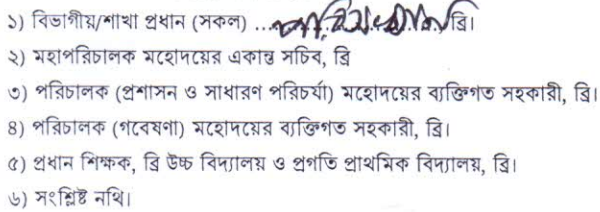 ১) বিভাগীয়/শাখা প্রধান (সকল) ..................ব্রি।
২) মহাপরিচালক মহোদয়ের একান্ত সচিব, ব্রি
৩) পরিচালক (প্রশাসন ও সাধারণ পরিচর্যা) মহোদয়ের ব্যক্তিগত সহকারী, ব্রি।
৪) পরিচালক (গবেষণা) মহোদয়ের ব্যক্তিগত সহকারী, ব্রি।
৫) প্রধান শিক্ষক, ব্রি উচ্চ বিদ্যালয় ও প্রগতি প্রাথমিক বিদ্যালয়, ব্রি।
৬) সংশ্লিষ্ট নথি।